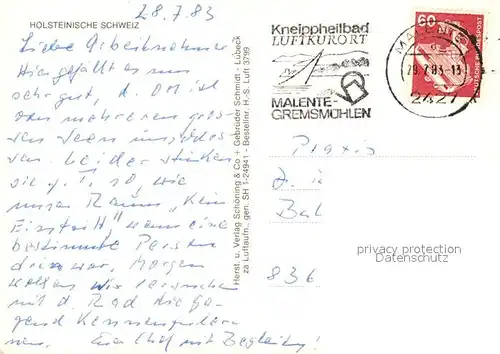 28.7.83
HOLSTEINISCHE SCHWEIZ
Liebe Arbeitnehmer
Hier gefällt es uns
sehr gut, d. Ort ist
von mehreren gros-
sen Seen
Leider stinken
sie z. T. so, wie
unser Raum "Kein
Eintritt", wenn eine
bestimmte Person
drin war. Morgen
wollen wir
mit d. Rad die Ge-
gend kennenzulernen
Euer Chef mit Begleitung!
Herst. u. Verlag Schöning & Co + Gebrüder Schmidt, Lübeck
za Luftaufn., gen. SH 1-24941 - Bestellnr. H.-S. Luft 3799
Kneippheilbad
LUFTKURORT
MALENTE-
GREMSMÜHLEN
MALENTE
29.7.83-13
2427
60
BUNDESPOST
Praxis
836
privacy protection
Datenschutz